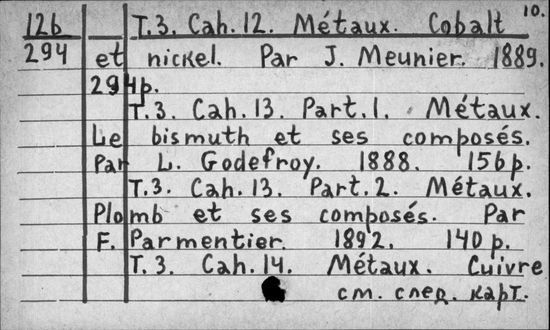 10.
126 T.3. Cah.12. Métaux. Cobalt
294 et nickel. Par J. Meunier. 1889.
294p.
T.3. Cah.13. Part.1. Métaux.
Le bismuth et ses composés.
Par L. Godefroy. 1888. 156p.
T.3. Cah.13. Part.2. Métaux.
Plomb et ses composés. Par
F. Parmentier. 1892. 140p.
T.3. Cah.14. Métaux. Cuivre
см. след. карт.